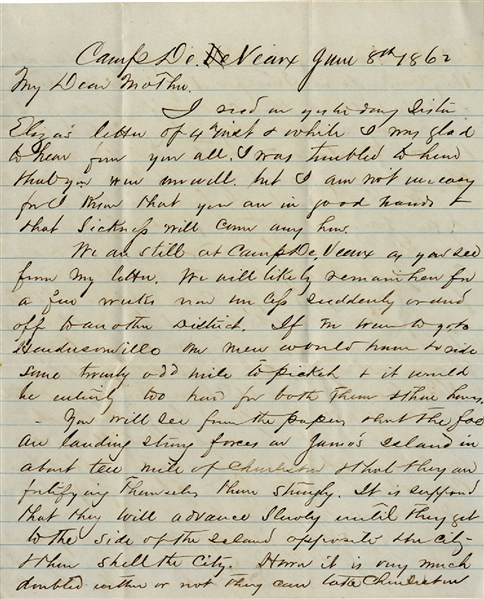 Camp De Veaux June 8th 1862
My Dear Mother.
I recd on yesterday Sister
Elizas letter of 4 Inst & while I was glad
to hear from you all. I was troubled to hear
that you was unwell. but I am not uneasy
for I know that you are in good hands &
that Sickness will come any how.
We are still at Camp De, Veaux as you see
from my letter. We will likely remain here for
a few weeks now unless suddenly ordered
off to another District. If we were to go to
Hendersonville our men would have to ride
some twenty odd mile to picket & it would
be entirely too hard for both them & their horses.
- You will see from the papers that the foe
are landing strong forces on James Island in
about ten mile of Charleston & that they are
fortifying themselves there strongly. It is supposed
that they will advance slowly until they get
to the side of the Island opposite the city
& then shell the City. it is very much
doubted or not they can take Charleston